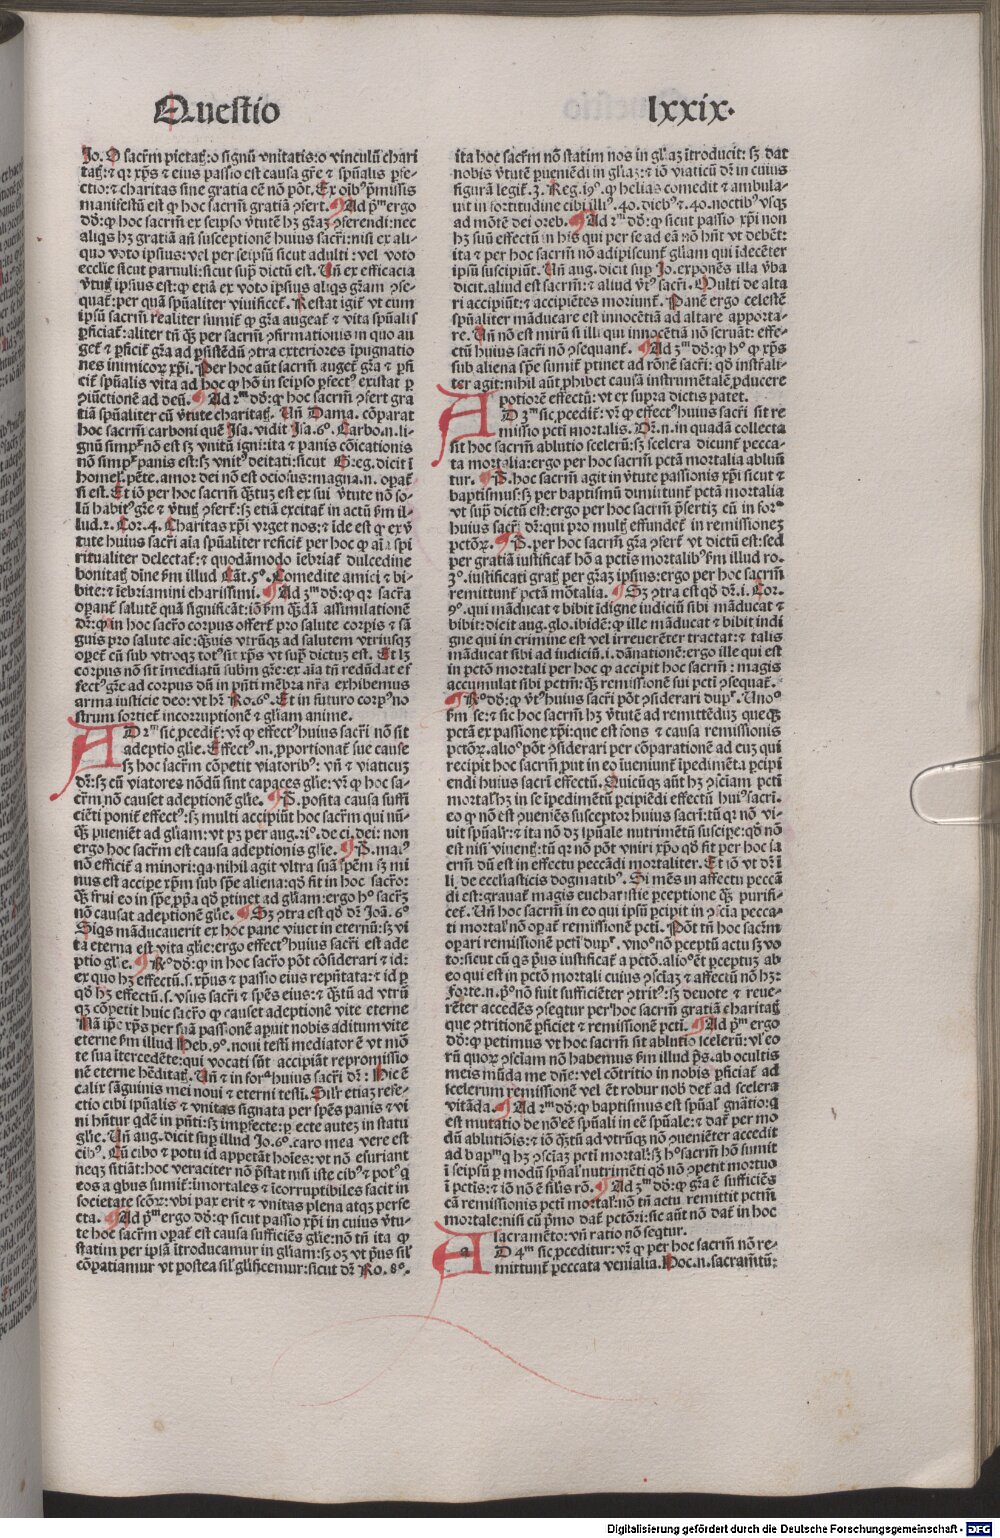 Questio
lxxix.
Jo. O sacr̄m pietatꝭ: o signū vnitatis: o vinculū chari
tatꝭ: ⁊ qꝛ xp̄s ⁊ eius passio est causa gr̄e ⁊ spūalis ꝑfe-
ctio: ⁊ charitas sine gratia eē nō pōt. Ex oībꝰ p̄missis
manifestū est ꝙ hoc sacr̄m gratiā ꝯfert. Ad pᵐ ergo
dd̄: ꝙ hoc sacr̄m ex seipso v̄tutē hꝫ gr̄aꝫ ꝯferendi: nec
aliqs hꝫ gratiā an̄ susceptionē huius sacr̄i: nisi ex ali-
quo voto ipsius: vel per seipsū sicut adulti: vel voto
ecclīe sicut paruuli: sicut sup̄ dictū est. Un̄ ex efficacia
v̄tutꝭ ipsius est: ꝙ etiā ex voto ipsius aliqs gr̄am ꝯse-
quat᷑: per quā spūaliter viuificet᷑. Restat igit᷑ vt cum
ipsū sacr̄m realiter sumit᷑ ꝙ gr̄a augeat᷑ ⁊ vita spūalis
ꝑficiat᷑: aliter tn̄ ꝙ̄ per sacr̄m ꝯfirmationis in quo au
get᷑ ⁊ ꝑficit᷑ gr̄a ad ꝑsistēdū ꝯtra exteriores īpugnatio
nes inimicoꝝ xp̄i. Per hoc aūt sacr̄m auget᷑ gr̄a ⁊ ꝑfi
cit᷑ spūalis vita ad hoc ꝙ hō in seipso ꝑfectꝰ existat ꝑ
ꝯiūctionē ad deū. Ad 2ᵐ dd̄: ꝙ hoc sacr̄m ꝯfert gra
tiā spūaliter cū v̄tute charitatꝭ. Un̄ Dama. cōparat
hoc sacr̄m carboni quē Isa. vidit Isa. 6º. Carbo .n. li-
gnū simpʳ nō est sꝫ vnitū igni: ita ⁊ panis cōicationis
nō simpʳ panis est: sꝫ vnitꝰ deitati: sicut Greg. dicit ī
homel. pēte. amor dei nō est ociosus: magna .n. opat᷑
si est. Et iō per hoc sacr̄m ꝙ̄tuꝫ est ex sui v̄tute nō so-
lū habitꝰ gr̄e ⁊ v̄tutꝭ ꝯfert᷑: sꝫ etiā excitat᷑ in actū ẜm il-
lud .2. Cor. 4. Charitas xp̄i vrget nos: ⁊ īde est ꝙ ex v̄
tute huius sacr̄i aīa spūaliter reficit᷑ per hoc ꝙ aīa spi
ritualiter delectat᷑: ⁊ quodāmodo īebriat᷑ dulcedine
bonitatꝭ dīne ẜm illud Cāt. 5º. Comedite amici ⁊ bi-
bite: ⁊ īebriamini charissimi. Ad 3ᵐ dd̄: ꝙ qꝛ sacr̄a
operant᷑ salutē quā significāt: iō ẜm ꝙ̄dā assimilationē
dr̄: ꝙ in hoc sacr̄o corpus offert᷑ pro salute corpis ⁊ sā
guis pro salute aīe: ꝙ̄uis vtrūqꝫ ad salutem vtriusqꝫ
operet᷑ cū sub vtroqꝫ totꝰ sit xp̄s vt sup̄ dictuꝫ est. Et lꝫ
corpus nō sit īmediatū subm̄ gr̄e: ex aīa tn̄ redūdat ef
fectꝰ gr̄e ad corpus dū in pn̄ti mēbra nr̄a exhibemus
arma iusticie deo: vt hr̄ Ro. 6º. Et in futuro corpꝰ no
strum sortiet᷑ incorruptionē ⁊ gl̄iam anime.
AD 2ᵐ sic ꝓcedit᷑: vr̄ ꝙ effectꝰ huius sacr̄i nō sit
adeptio gl̄ie. Effectꝰ .n. ꝓportionat᷑ sue cause
sꝫ hoc sacr̄m cōpetit viatoribꝰ: vn̄ ⁊ viaticuꝫ
dr̄: sꝫ cū viatores nōdū sint capaces gl̄ie: vr̄ ꝙ hoc sa-
cr̄m nō causet adeptionē gl̄ie. P̄. posita causa suffi
ciēti ponit᷑ effectꝰ: sꝫ multi accipiūt hoc sacr̄m qui nū-
ꝙ̄ pueniēt ad gl̄iam: vt pꝫ per aug. 21º. de ci. dei: non
ergo hoc sacr̄m est causa adeptionis gl̄ie. P̄. maiꝰ
nō efficit᷑ a minori: qa nihil agit vltra suā spēm sꝫ mi
nus est accipe xp̄m sub spē aliena: qd̄ fit in hoc sacr̄o:
ꝙ̄ frui eo in spē ꝓpa qd̄ ꝑtinet ad gl̄iam: ergo hº sacr̄ꝫ
nō causat adeptionē gl̄ie. Sꝫ ꝯtra est qd̄ dr̄ Joā. 6º
Siqs māducauerit ex hoc pane viuet in eternū: sꝫ vi
ta eterna est vita gl̄ie: ergo effectꝰ huius sacr̄i est ade
ptio gl̄ie. Rº dd̄: ꝙ in hoc sacr̄o pōt cōsiderari ⁊ id:
ex quo hꝫ effectū .s. xp̄us ⁊ passio eius rep̄ntata: ⁊ id ꝑ
qd̄ hꝫ effectū .s. vsus sacr̄i ⁊ spēs eius: ⁊ ꝙ̄tū ad vtrū
qꝫ cōpetit huic sacr̄o ꝙ causet adeptionē vite eterne
Nā ip̄e xp̄s per suā passionē apuit nobis aditum vite
eterne ẜm illud Heb. 9º. noui testi mediator ē vt mor
te sua ītercedēte: qui vocati sūt accipiāt repromissio
nē eterne hēditatꝭ. Un̄ ⁊ in forᵃ huius sacr̄i dr̄: Hic ē
calix sāguinis mei noui ⁊ eterni testi. Sil̄r etiaꝫ refe-
ctio cibi spūalis ⁊ vnitas signata per spēs panis ⁊ vi
ni hn̄tur qdē in pn̄ti: sꝫ imꝑfecte: ꝑfecte autem in statu
gl̄ie. Un̄ aug. dicit sup illud Jo. 6º. caro mea vere est
cibꝰ. Cū cibo ⁊ potu id appetāt hoīes: vt nō esuriant
neqꝫ sitiāt: hoc veraciter nō p̄stat nisi iste cibꝰ ⁊ potꝰ q
eos a qbus sumit᷑: īmortales ⁊ īcorruptibiles facit in
societate sc̄oꝝ: vbi pax erit ⁊ vnitas plena atqꝫ perfe
cta. Ad pᵐ ergo dd̄: ꝙ sicut passio xp̄i in cuius v̄tu-
te hoc sacr̄m opat᷑ est causa sufficiēs gl̄ie: nō tn̄ ita ꝙ
statim per ipsā ītroducamur in gl̄iam: sꝫ oꝫ vt pus sil̄
cōpatiamur vt postea sil̄ gl̄ificemur: sicut dr̄ Ro. 8º.
ita hoc sacr̄m nō statim nos in gl̄iaꝫ ītroducit: sꝫ dat
nobis v̄tutē pueniēdi in gl̄iaꝫ: ⁊ iō viaticū dr̄ in cuius
figurā legit᷑ .3. Reg. 19º. ꝙ helias comedit ⁊ ambula-
uit in fortitudine cibi illiꝰ .40. diebꝰ ⁊ .40. noctibꝰ vsqꝫ
ad mōtē dei oreb. Ad 2ᵐ dd̄: ꝙ sicut passio xp̄i non
hꝫ suū effectū in his qui per se ad eā nō hn̄t vt debēt:
ita ⁊ per hoc sacr̄m nō adipiscunt᷑ gl̄iam qui īdecēter
ipsū suscipiūt. Un̄ aug. dicit sup Jo. exponēs illa v̄ba
dicit. aliud est sacr̄m: ⁊ aliud v̄tꝰ sacr̄i. Multi de alta
ri accipiūt: ⁊ accipiētes moriunt᷑. Panē ergo celestē
spūaliter māducare est innocētiā ad altare apporta-
re. Un̄ nō est mirū si illi qui innocētiā nō seruāt: effe-
ctū huius sacr̄i nō ꝯsequant᷑. Ad 3ᵐ dd̄: ꝙ hº ꝙ xp̄s
sub aliena spē sumit᷑ ꝑtinet ad rōnē sacr̄i: qd̄ instr̄ali-
ter agit: nihil aūt ꝓhibet causā instrumētalē ꝓducere
potiorē effectū: vt ex supra dictis patet.
AD 3ᵐ sic ꝓcedit᷑: vr̄ ꝙ effectꝰ huius sacr̄i sit re
missio pcti mortalis. Dr̄ .n. in quadā collecta
sit hoc sacr̄m ablutio scelerū: sꝫ scelera dicunt᷑ pecca-
ta mortalia: ergo per hoc sacr̄m pctā mortalia abluū
tur. P̄. hoc sacr̄m agit in v̄tute passionis xp̄i sicut ⁊
baptismus: sꝫ per baptismū dimittunt᷑ pctā mortalia
vt sup̄ dictū est: ergo per hoc sacr̄m p̄sertiꝫ cū in forᵃ
huius sacr̄i dr̄: qui pro multꝭ effundet᷑ in remissioneꝫ
pctōꝝ. P̄. per hoc sacr̄m gr̄a ꝯfert᷑ vt dictū est: sed
per gratiā iustificat᷑ hō a pctis mortalibꝰ ẜm illud ro.
3º. iustificati gratꝭ per gr̄aꝫ ipsius: ergo per hoc sacr̄m
remittunt᷑ pctā mōtalia. Sꝫ ꝯtra est qd̄ dr̄ .1. Cor.
9º. qui māducat ⁊ bibit īdigne iudiciū sibi māducat ⁊
bibit: dicit aug. glo. ibidē: ꝙ ille māducat ⁊ bibit indi
gne qui in crimine est vel irreuerēter tractat: ⁊ talis
māducat sibi ad iudiciū .i. dānationē: ergo ille qui est
in pctō mortali per hoc ꝙ accipit hoc sacr̄m: magis
accumulat sibi pctm̄: ꝙ̄ remissionē sui pcti ꝯsequat᷑.
Rº dd̄: ꝙ v̄tꝰ huius sacr̄i pōt ꝯsiderari dupʳ. Unoº
ẜm se: ⁊ sic hoc sacr̄m hꝫ v̄tutē ad remittēduꝫ queqꝫ
pctā ex passione xp̄i: que est fons ⁊ causa remissionis
pctōꝝ. alioº pōt ꝯsiderari per cōparationē ad euꝫ qui
recipit hoc sacr̄m put in eo īueniunt᷑ īpedimēta pcipi
endi huius sacr̄i effectū. Quicūqꝫ aūt hꝫ ꝯsciam pcti
mortal̄ hꝫ in se īpedimētū pcipiēdi effectū huiꝰ sacr̄i.
eo ꝙ nō est ꝯueniēs susceptor huius sacr̄i: tū qꝛ nō vi-
uit spūal̄r: ⁊ ita nō dꝫ spūale nutrimētū suscipe: qd̄ nō
est nisi viuentꝭ: tū qꝛ nō pōt vniri xp̄o qd̄ fit per hoc sa
crm̄ dū est in effectu peccādi mortaliter. Et iō vt dr̄ ī
li. de ecclīasticis dogmatibꝰ. Si mēs in affectu peccā
di est: grauat᷑ magis eucharistie ꝑceptione ꝙ̄ purifi-
cet᷑. Un̄ hoc sacr̄m in eo qui ipsū pcipit in ꝯscia pecca-
ti mortal̄ nō opat᷑ remissionē pcti. Pōt tn̄ hoc sacr̄m
opari remissionē pcti dupʳ. vnoº nō ꝑceptū actu sꝫ vo
to: sicut cū qs pus iustificat᷑ a pctō. alioº ēt ꝑceptuꝫ ab
eo qui est in pctō mortali cuius ꝯsciaꝫ ⁊ affectū nō hꝫ:
Forte .n. pº nō fuit sufficiēter ꝯtritꝰ: sꝫ deuote ⁊ reue-
rēter accedēs ꝯseqtur per hoc sacr̄m gratiā charitatꝭ
que ꝯtritionē ꝑficiet ⁊ remissionē pcti. Ad pᵐ ergo
dd̄: ꝙ petimus vt hoc sacr̄m sit ablutio scelerū: vl̄ eo
rū quoꝝ ꝯsciam nō habemus ẜm illud ps. ab ocultis
meis mūda me dn̄e: vel cōtritio in nobis ꝑficiat᷑ ad
scelerum remissionē vel ēt robur nob̄ det᷑ ad scelera
vitāda. Ad 2ᵐ dd̄: ꝙ baptismus est spūal̄ gnātio: q
est mutatio de nō eē spūali in eē spūale: ⁊ dat᷑ per mo
dū ablutiōis: ⁊ iō ꝙ̄tū ad vtrūqꝫ nō ꝯueniēter accedit
ad bapᵐ q hꝫ ꝯsciaꝫ pcti mortal̄: sꝫ hº sacr̄m hō sumit
ī seipsū ꝑ modū spūal̄ nutrimēti qd̄ nō ꝯpetit mortuo
ī pctis: ⁊ iō nō ē sil̄is rō. Ad 3ᵐ dd̄: ꝙ gr̄a ē sufficiēs
cā remissionis pcti mortal̄: nō tn̄ actu remittit pctm̄
mortale: nisi cū pmo dat᷑ pctōri: sic aūt nō dat᷑ in hoc
sacramēto: vn̄ ratio nō seqtur.
AD 4ᵐ sic ꝓceditur: vr̄ ꝙ per hoc sacr̄m nō re-
mittunt᷑ peccata venialia. Hoc .n. sacramtū:
Digitalisierung gefördert durch die Deutsche Forschungsgemeinschaft - DFG